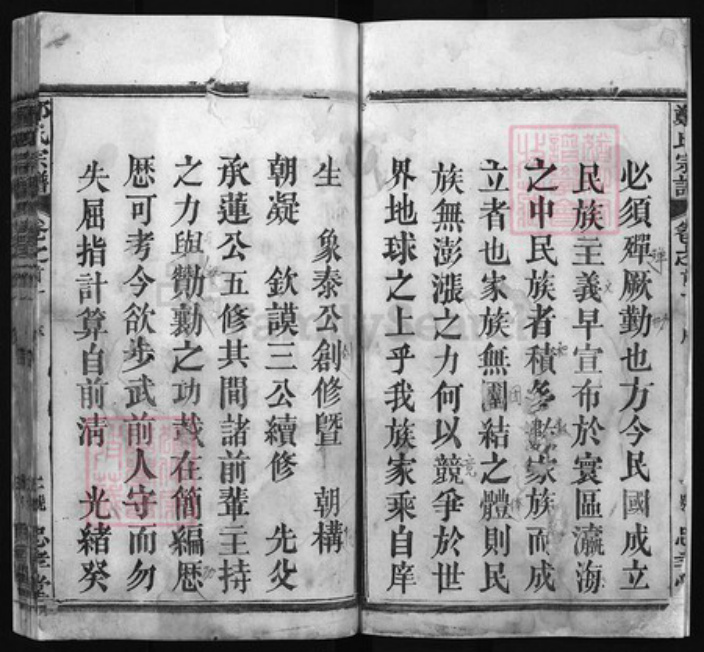 必須殫厥勤也方今民國成立
民族主義早宣布於寰區瀛海
之中民族者積多數家族而成
立者也家族無團結之體則民
族無澎漲之力何以競爭於世
界地球之上乎我族家乘自庠
生 象泰公創修暨 朝構
朝凝 欽謨三公續修 先父
承蓮公五修其間諸前輩主持
之力與勷勷之功載在簡編歷
歷可考今欲步武前人守而勿
失屈指計算自前清 光緒癸
鄭氏宗譜
卷之首
忠孝堂
FamilySearch